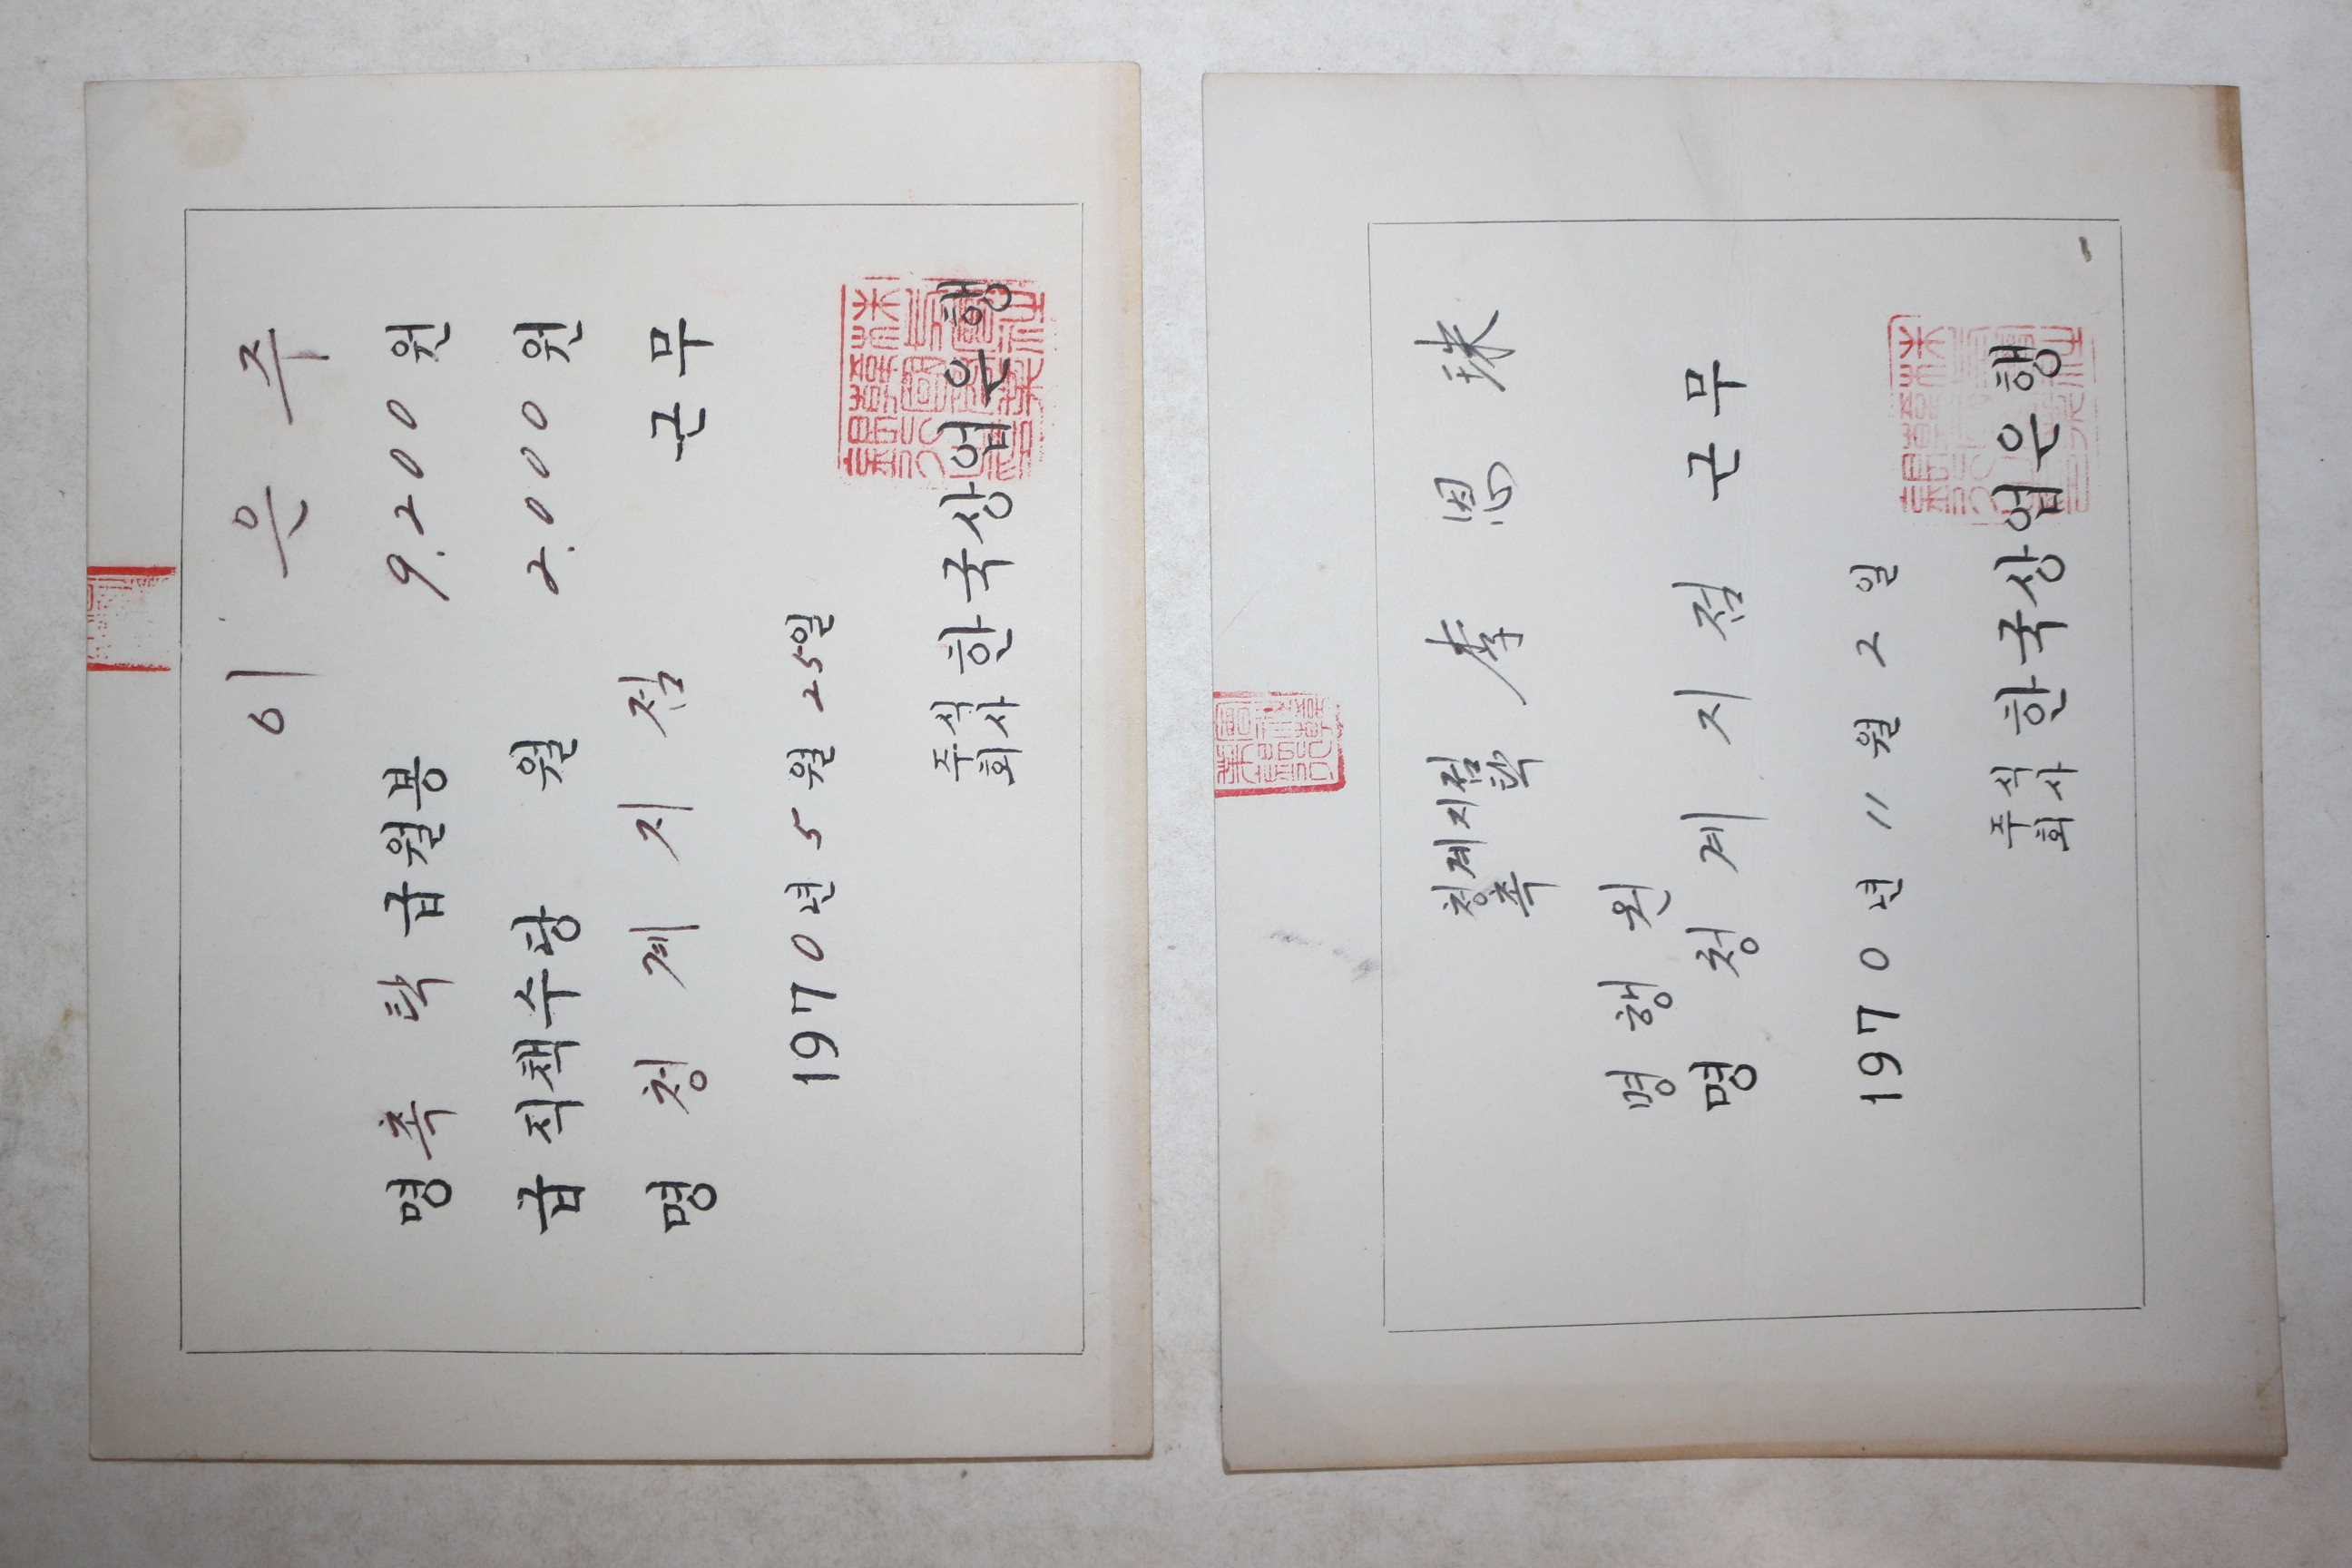 이 은 주
명 촉 탁 급월봉 9.200 원
급 직책수당 월 2.000 원
명 청 계 지 점 근 무
1970년 5월 25일
주식회사 한국상업은행
청계지점 촉탁 李 恩 珠
명 행 원
명 청 계 지 점 근 무
1970년 11월 2일
주식회사 한국상업은행